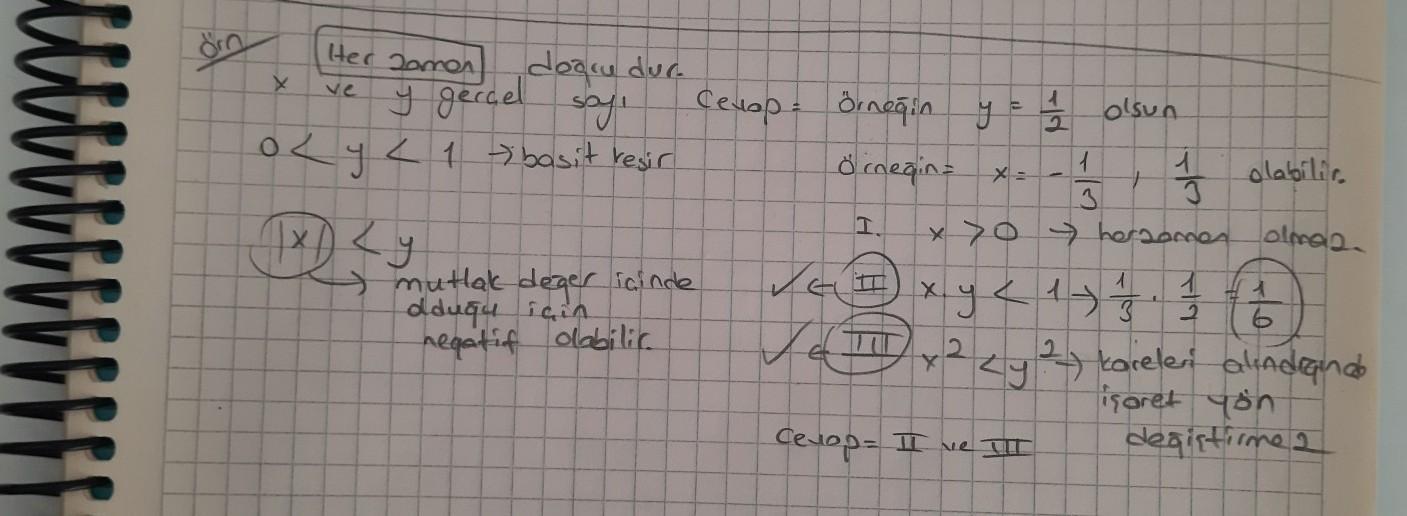 Örn Her zaman doğrudur.
x ve y gerçel sayı
0 < y < 1 → basit kesir
|x| < y
→ mutlak değer içinde
olduğu için
negatif olabilir.
Cevap = Örneğin y = 1/2 olsun
Örneğin = x = - 1/3 , 1/3 olabilir.
I. x > 0 → herzaman olmaz.
✓ ← II x.y < 1 → 1/3 . 1/2 = 1/6
✓ ← III x² < y² → kareleri alındığında
işaret yön
değiştirmez
Cevap = II ve III